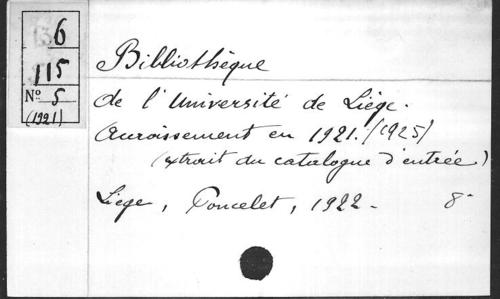 6
115
Nº 5
(1921)
Bibliothèque
de l'Université de Liége.
Accroissement en 1921. (1925)
(extrait du catalogue d'entrée)
Liége, Poncelet, 1922. 8º